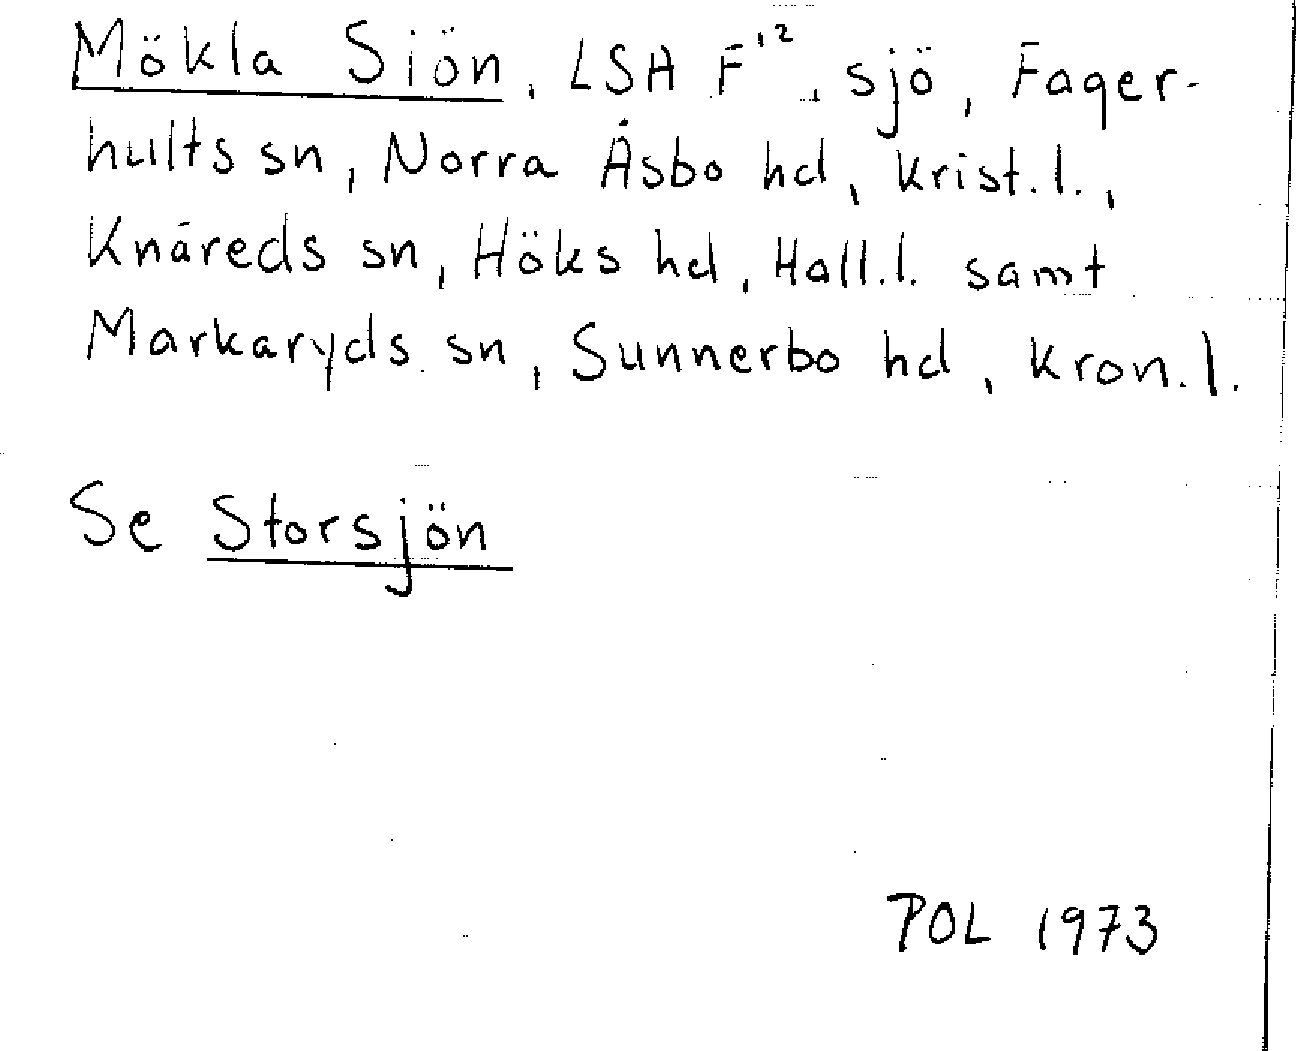 Mökla Siön, LSA F¹², sjö, Fager-
hults sn, Norra Åsbo hd, Krist.l.,
Knäreds sn, Höks hd, Hall.l. samt
Markaryds sn, Sunnerbo hd, Kron.l.
Se Storsjön
POL 1973